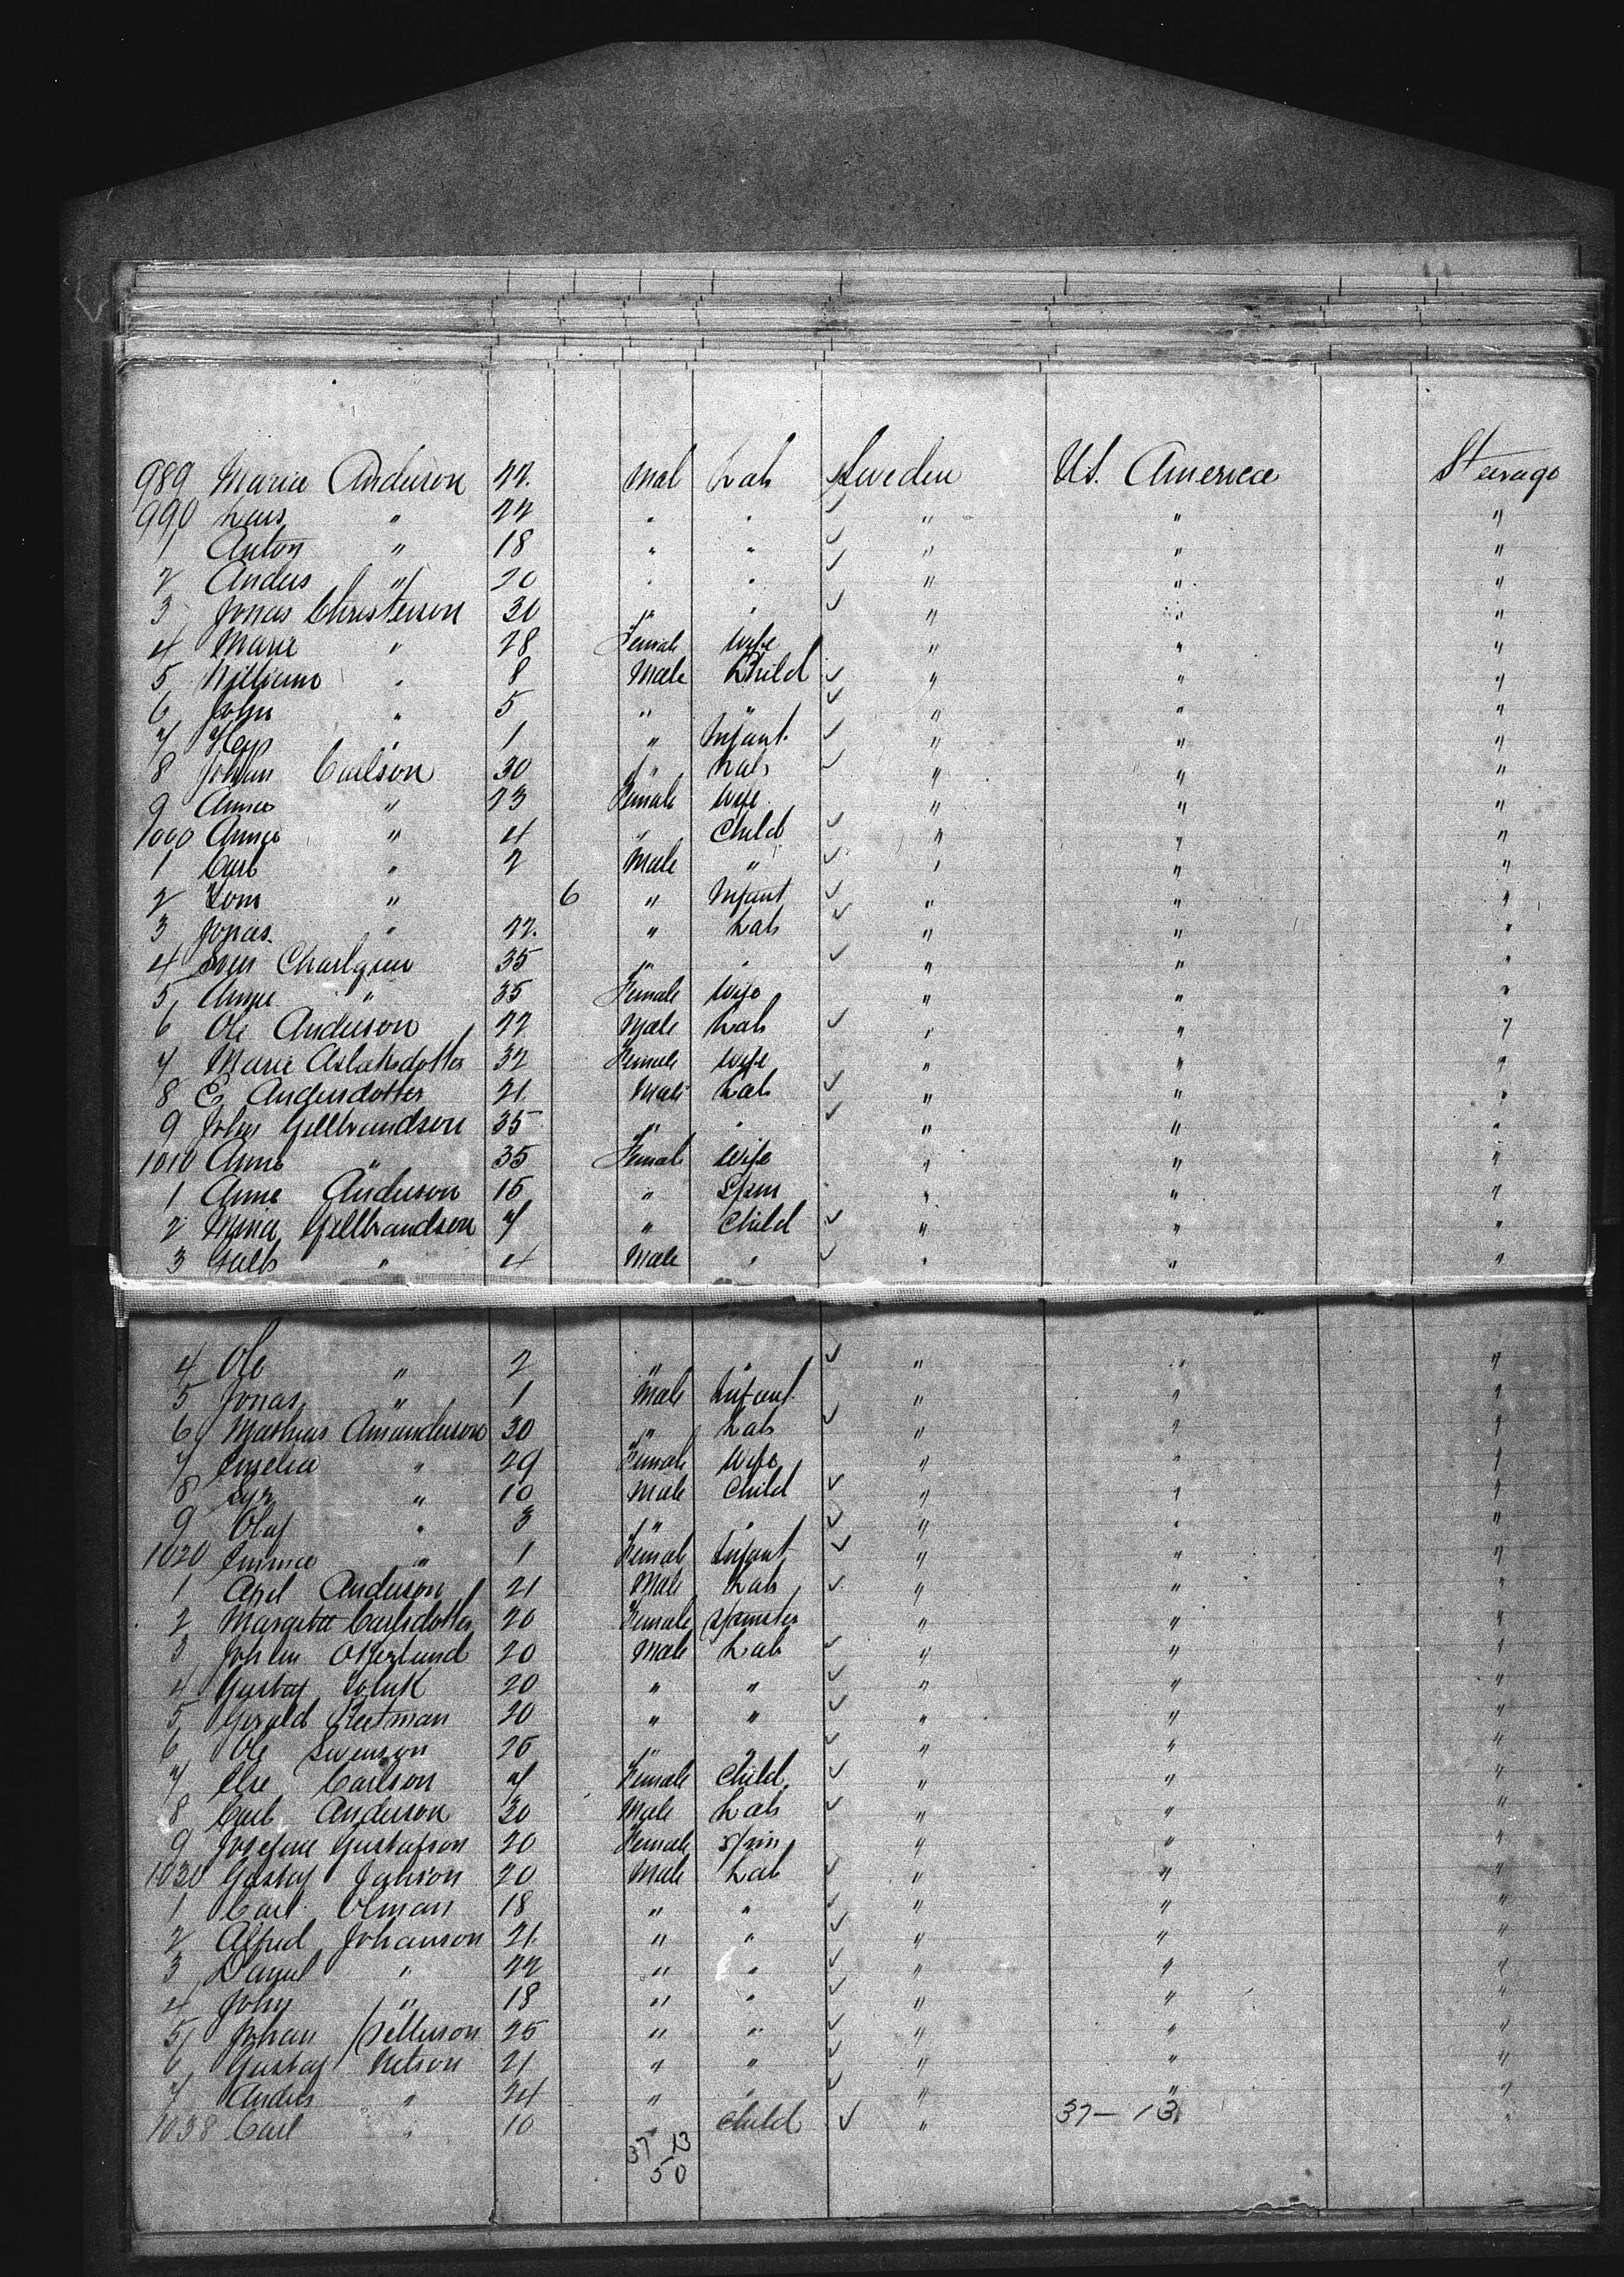 989 Maria Anderson 22. Mal Lab Sweden U.S. America Steerage
990 Lars " 22 " " " " "
1 Anton " 18 " " " " "
2 Anders " 20 " " " " "
3 Jonas Christenson 30 " " " " "
4 Marie " 28 Female Wife " " "
5 William " 8 Male Child " " "
6 John " 5 " " " " "
7 " 1 " Infant " " "
8 Johan Carlson 30 " Lab " " "
9 Anna " 23 Female Wife " " "
1000 Anna " 4 " Child " " "
1 Carl " 2 Male " " " "
2 Tom " 6 " Infant " " "
3 Jonas. " 22. " Lab " " "
4 Sven 35 " " " " "
5 Anne " 35 Female Wife " " "
6 Ole Anderson 22 Male Lab " " "
7 Marie Aslaksdotter 32 Female Wife " " "
8 E Andersdotter 21 Male Lab " " "
9 John Gullbrandson 35 " " " " "
1010 Anna " 35 Female Wife " " "
1 Anna Anderson 15 " Spin " " "
2 Maria Gullbrandson 7 " Child " " "
3 Gulb " 4 Male " " " "
4 Ole " 2 " " " " "
5 Jonas " 1 Male Infant " " "
6 Mathias Amunderson 30 " Lab " " "
7 Emelia " 29 Female Wife " " "
8 " 10 Male Child " " "
9 Olaf " 3 " " " " "
1020 Emma " 1 Female Infant " " "
1 Axel Anderson 21 Male Lab " " "
2 Margreta Carlsdotter 20 Female Spinster " " "
3 Johan 20 Male Lab " " "
4 Gustaf 20 " " " " "
5 Gerald 20 " " " " "
6 Ole Swenson 25 " " " " "
7 Else Carlson 7 Female Child " " "
8 Carl Anderson 30 Male Lab " " "
9 Josefine Gustafson 20 Female Spin " " "
1030 Gustaf Janson 20 Male Lab " " "
1 Carl Olman 18 " " " " "
2 Alfred Johanson 21. " " " " "
3 Daniel " 22 " " " " "
4 John " 18 " " " " "
5 Johan Petterson 25 " " " " "
6 Gustaf Nelson 21 " " " " "
7 Anders " 24 " " " " "
1038 Carl " 10 " Child " 37 – 13 "
37 13
50